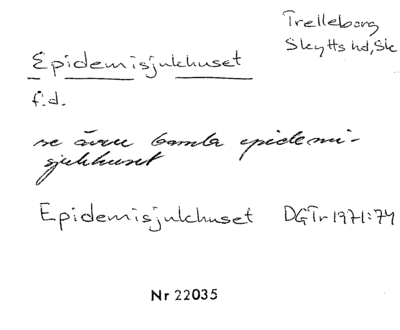 Trelleborg
Skytts hd, Sk
Epidemisjukhuset
f.d.
se även Gamla epidemi-
sjukhuset
Epidemisjukhuset DGTr 1971:74
Nr 22035